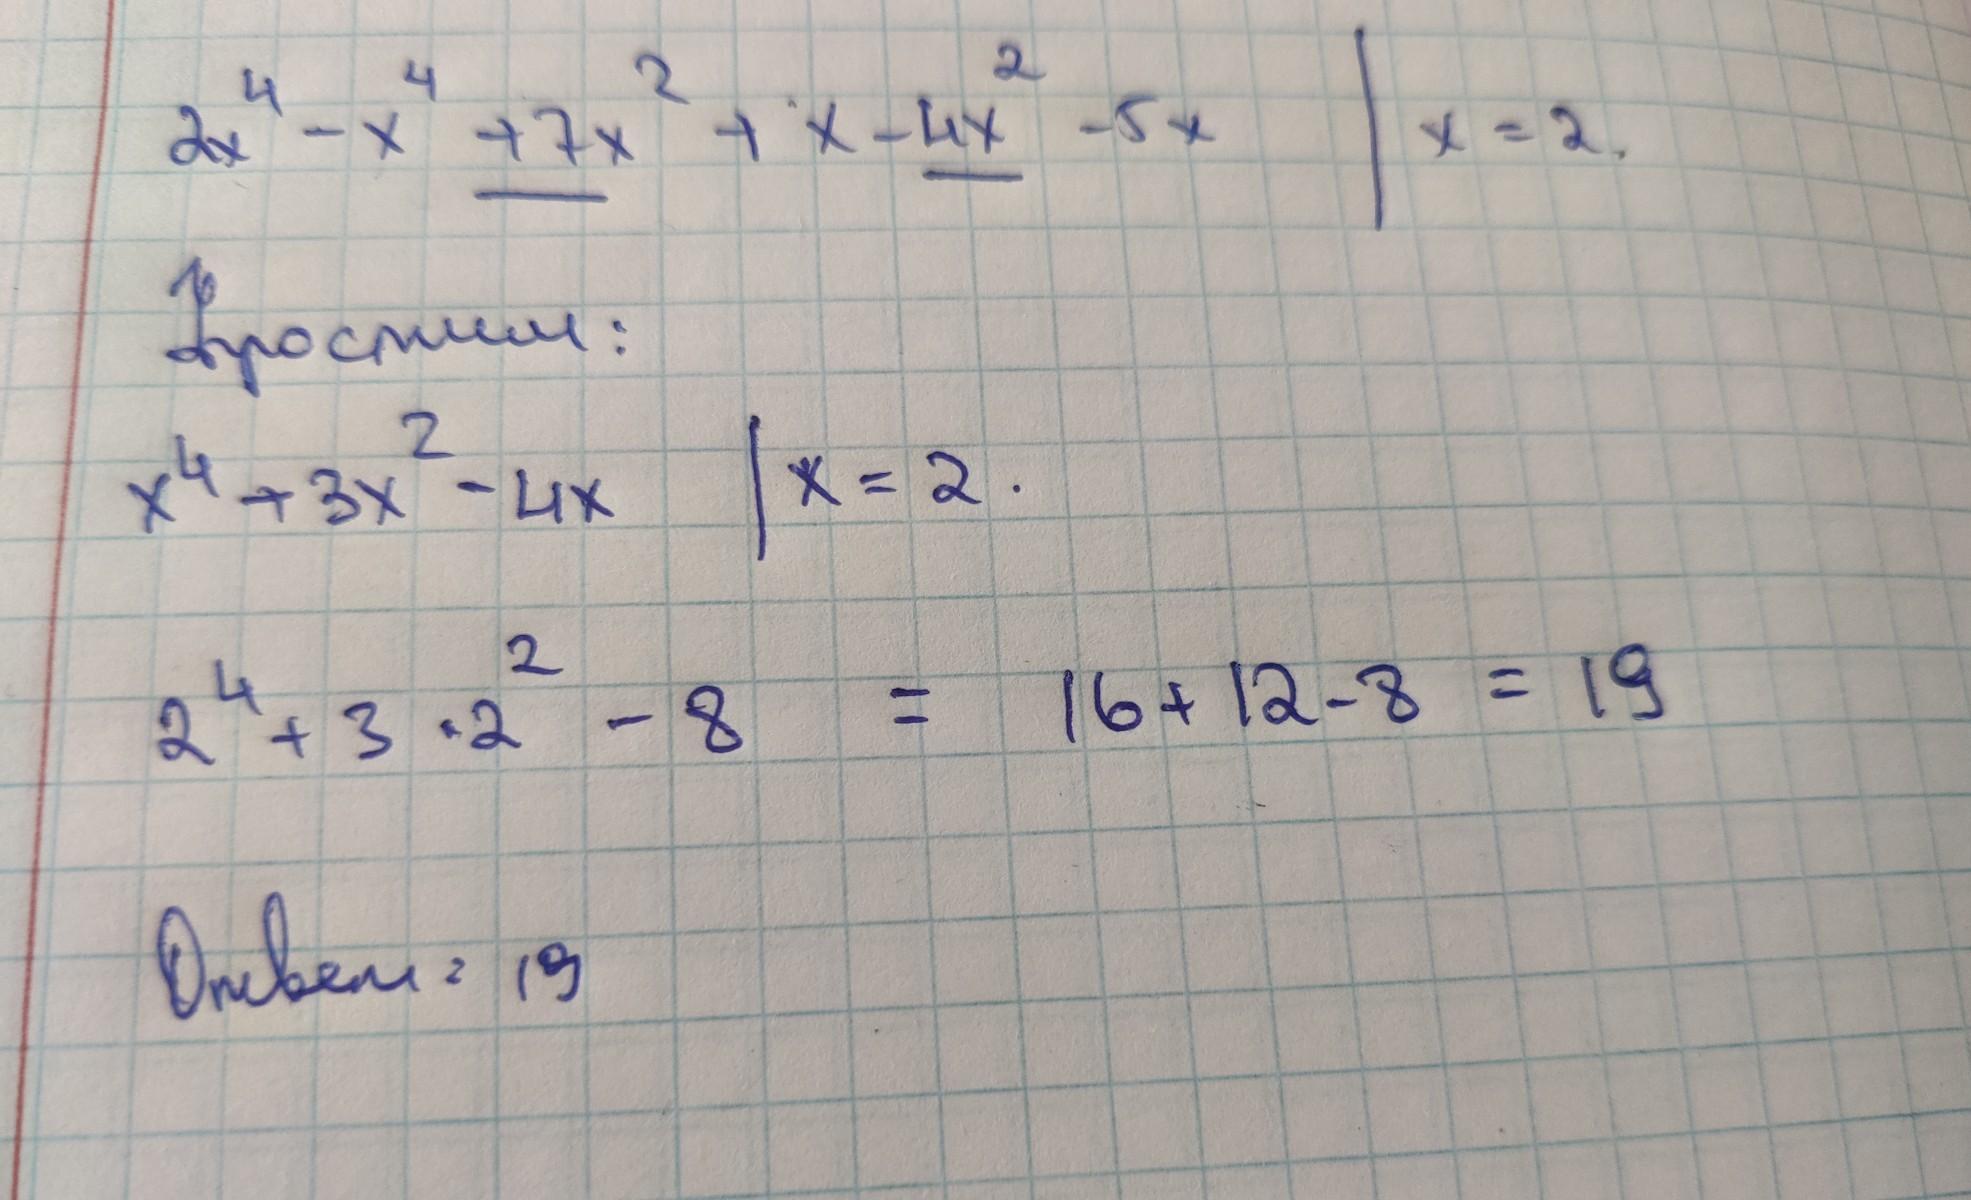 2x⁴ - x⁴ + 7x² + x - 4x² - 5x | x = 2.
Упростим:
x⁴ + 3x² - 4x | x = 2.
2⁴ + 3 · 2² - 8 = 16 + 12 - 8 = 19
Ответ: 19